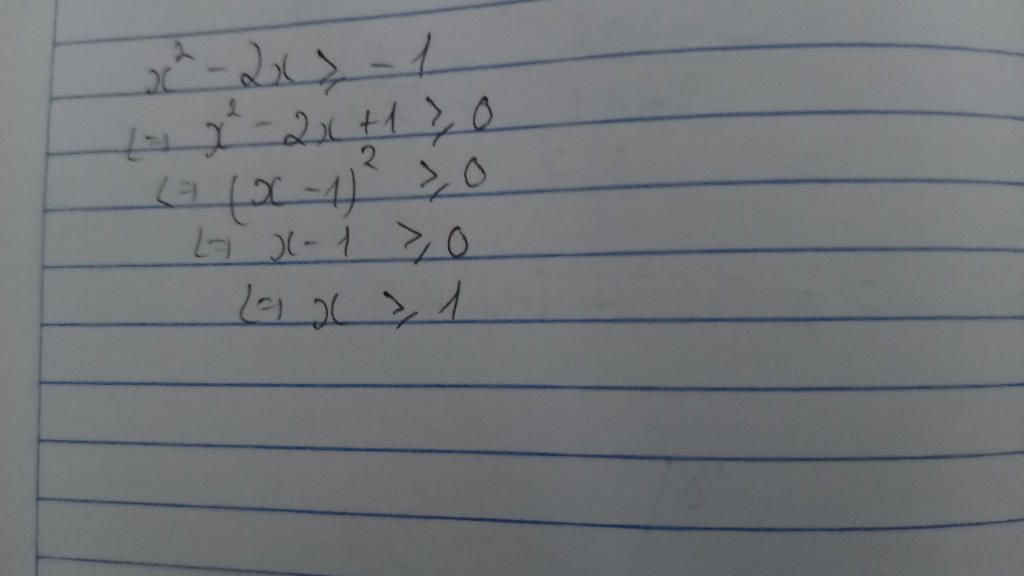 x² - 2x ⩾ - 1
<=> x² - 2x + 1 ⩾ 0
<=> (x - 1)² ⩾ 0
<=> x - 1 ⩾ 0
<=> x ⩾ 1